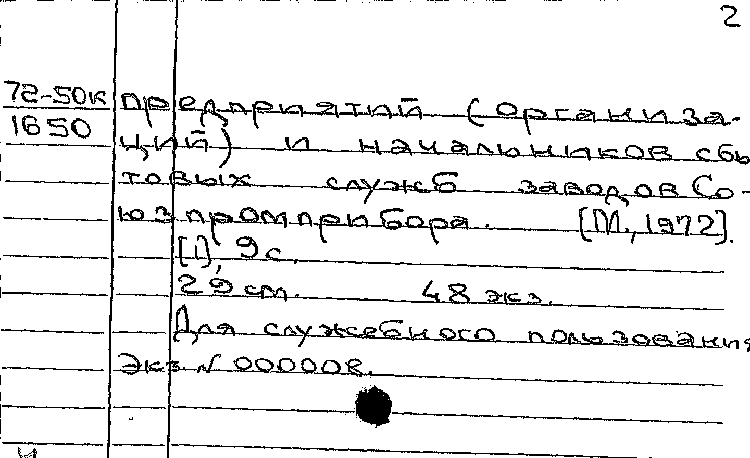 2
72-50к предприятий (организа-
1650 ций) и начальников сбы
товых служб заводов Со-
юзпромприбора. [М., 1972].
[1], 9 с.
29 см. 48 экз.
Для служебного пользования
Экз. № 000008.